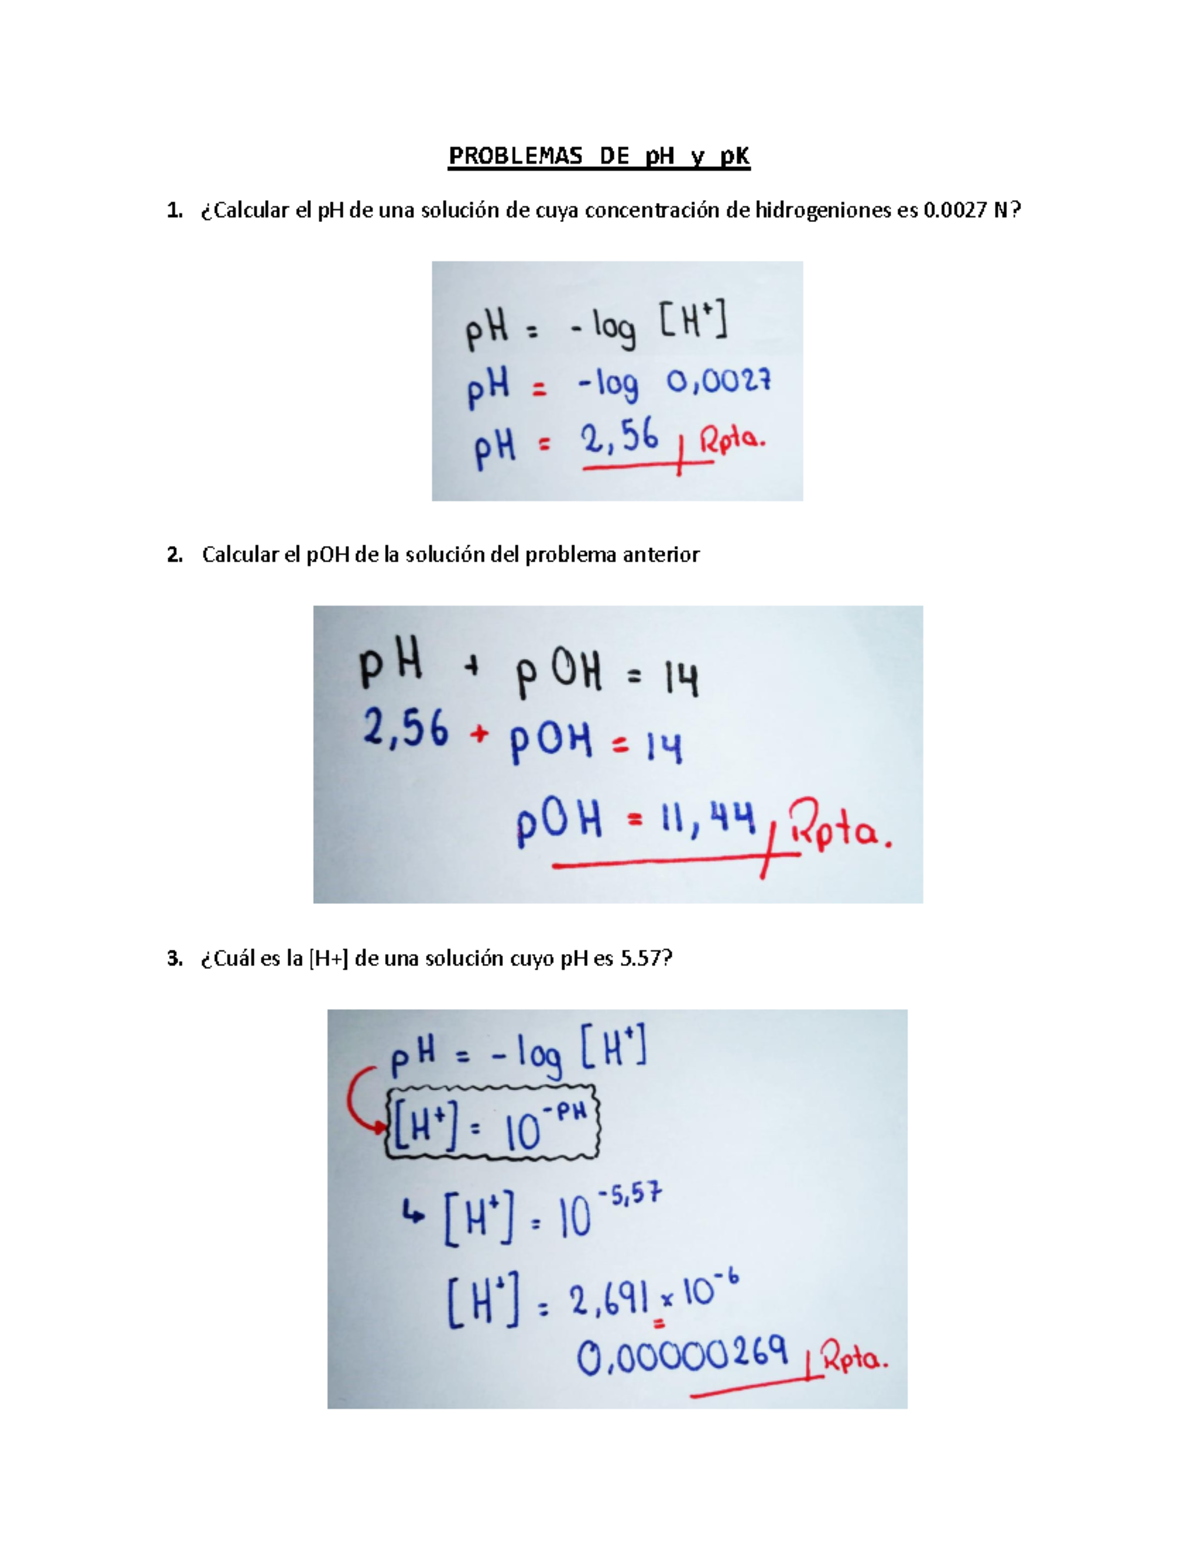 PROBLEMAS DE pH y pK
1. ¿Calcular el pH de una solución de cuya concentración de hidrogeniones es 0.0027 N?
pH = - log [H+]
pH = -log 0,0027
pH = 2,56 Rpta.
2. Calcular el pOH de la solución del problema anterior
pH + pOH = 14
2,56 + pOH = 14
pOH = 11,44 Rpta.
3. ¿Cuál es la [H+] de una solución cuyo pH es 5.57?
pH = - log [H+]
[H+] = 10-PH
↳ [H+] = 10-5,57
[H+] = 2,691 x 10-6
=
0,00000269 Rpta.